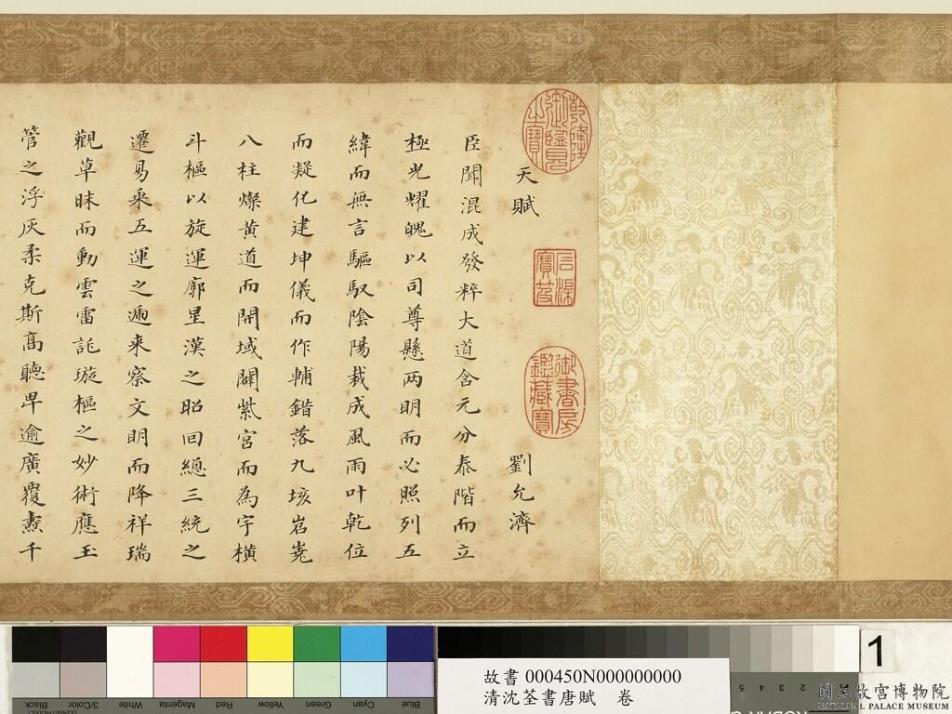 乾隆御覽之寶
石渠寶笈
御書房鑑藏寶
天賦 劉允濟
臣聞混成發粹大道含元分泰階而立
極光耀魄以司尊懸兩明而必照列五
緯而無言驅馭陰陽裁成風雨叶乾位
而凝化建坤儀而作輔錯落九垓岧嶤
八柱燦黃道而開域闢紫宮而為宇橫
斗樞以旋運廓星漢之昭回總三統之
遷易乘五運之遞來察文明而降祥瑞
觀草昧而動雲雷託璇樞之妙術應玉
管之浮灰柔克斯高聽卑逾廣覆燾千
Blue Cyan Green Yellow Red Magenta White 3/Color Black
故書 000450N000000000
清沈荃書唐賦 卷
5 4 3 2
1
國立故宮博物院
NATIONAL PALACE MUSEUM